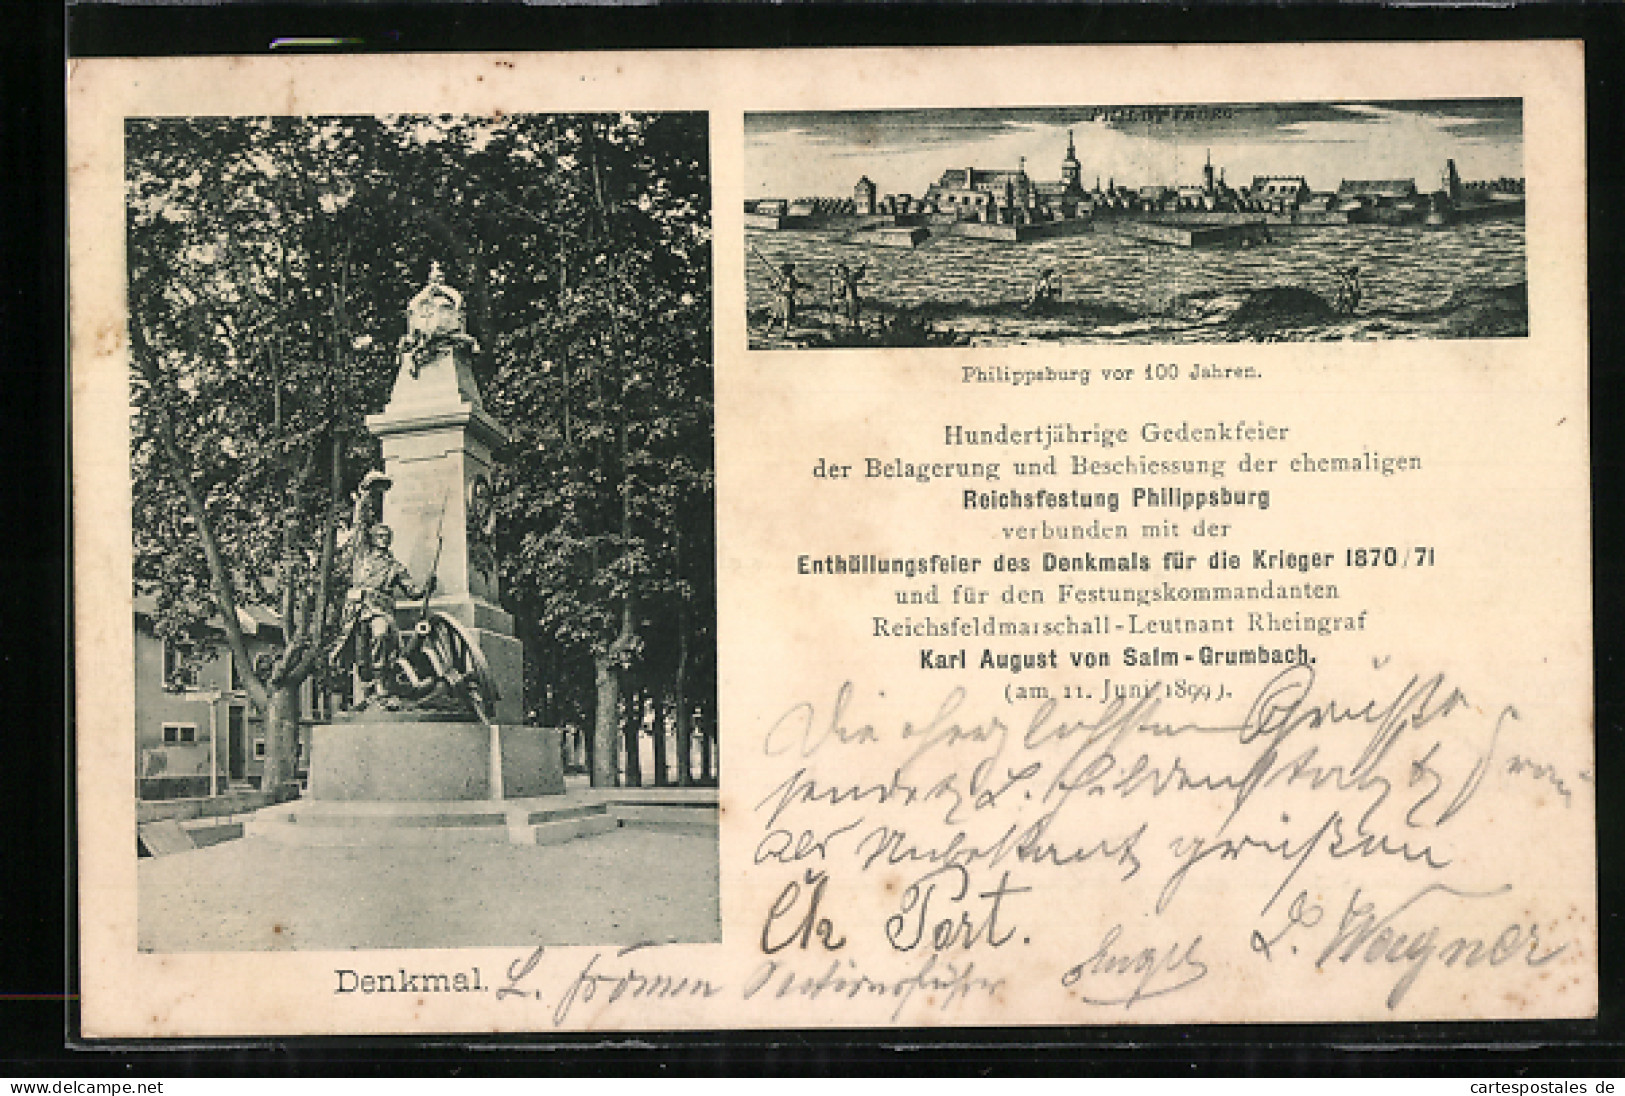 PHILIPPSBURG
Philippsburg vor 100 Jahren.
Hundertjährige Gedenkfeier
der Belagerung und Beschiessung der ehemaligen
Reichsfestung Philippsburg
verbunden mit der
Enthüllungsfeier des Denkmals für die Krieger 1870/71
und für den Festungskommandanten
Reichsfeldmarschall-Leutnant Rheingraf
Karl August von Salm-Grumbach.
(am 11. Juni 1899).
Die herzlichsten Grüße
sendet L. Frau
als Unbekannt grüßen
Chr Port.
L. Wagner
Denkmal.
cartespostales.de
cartespostales de